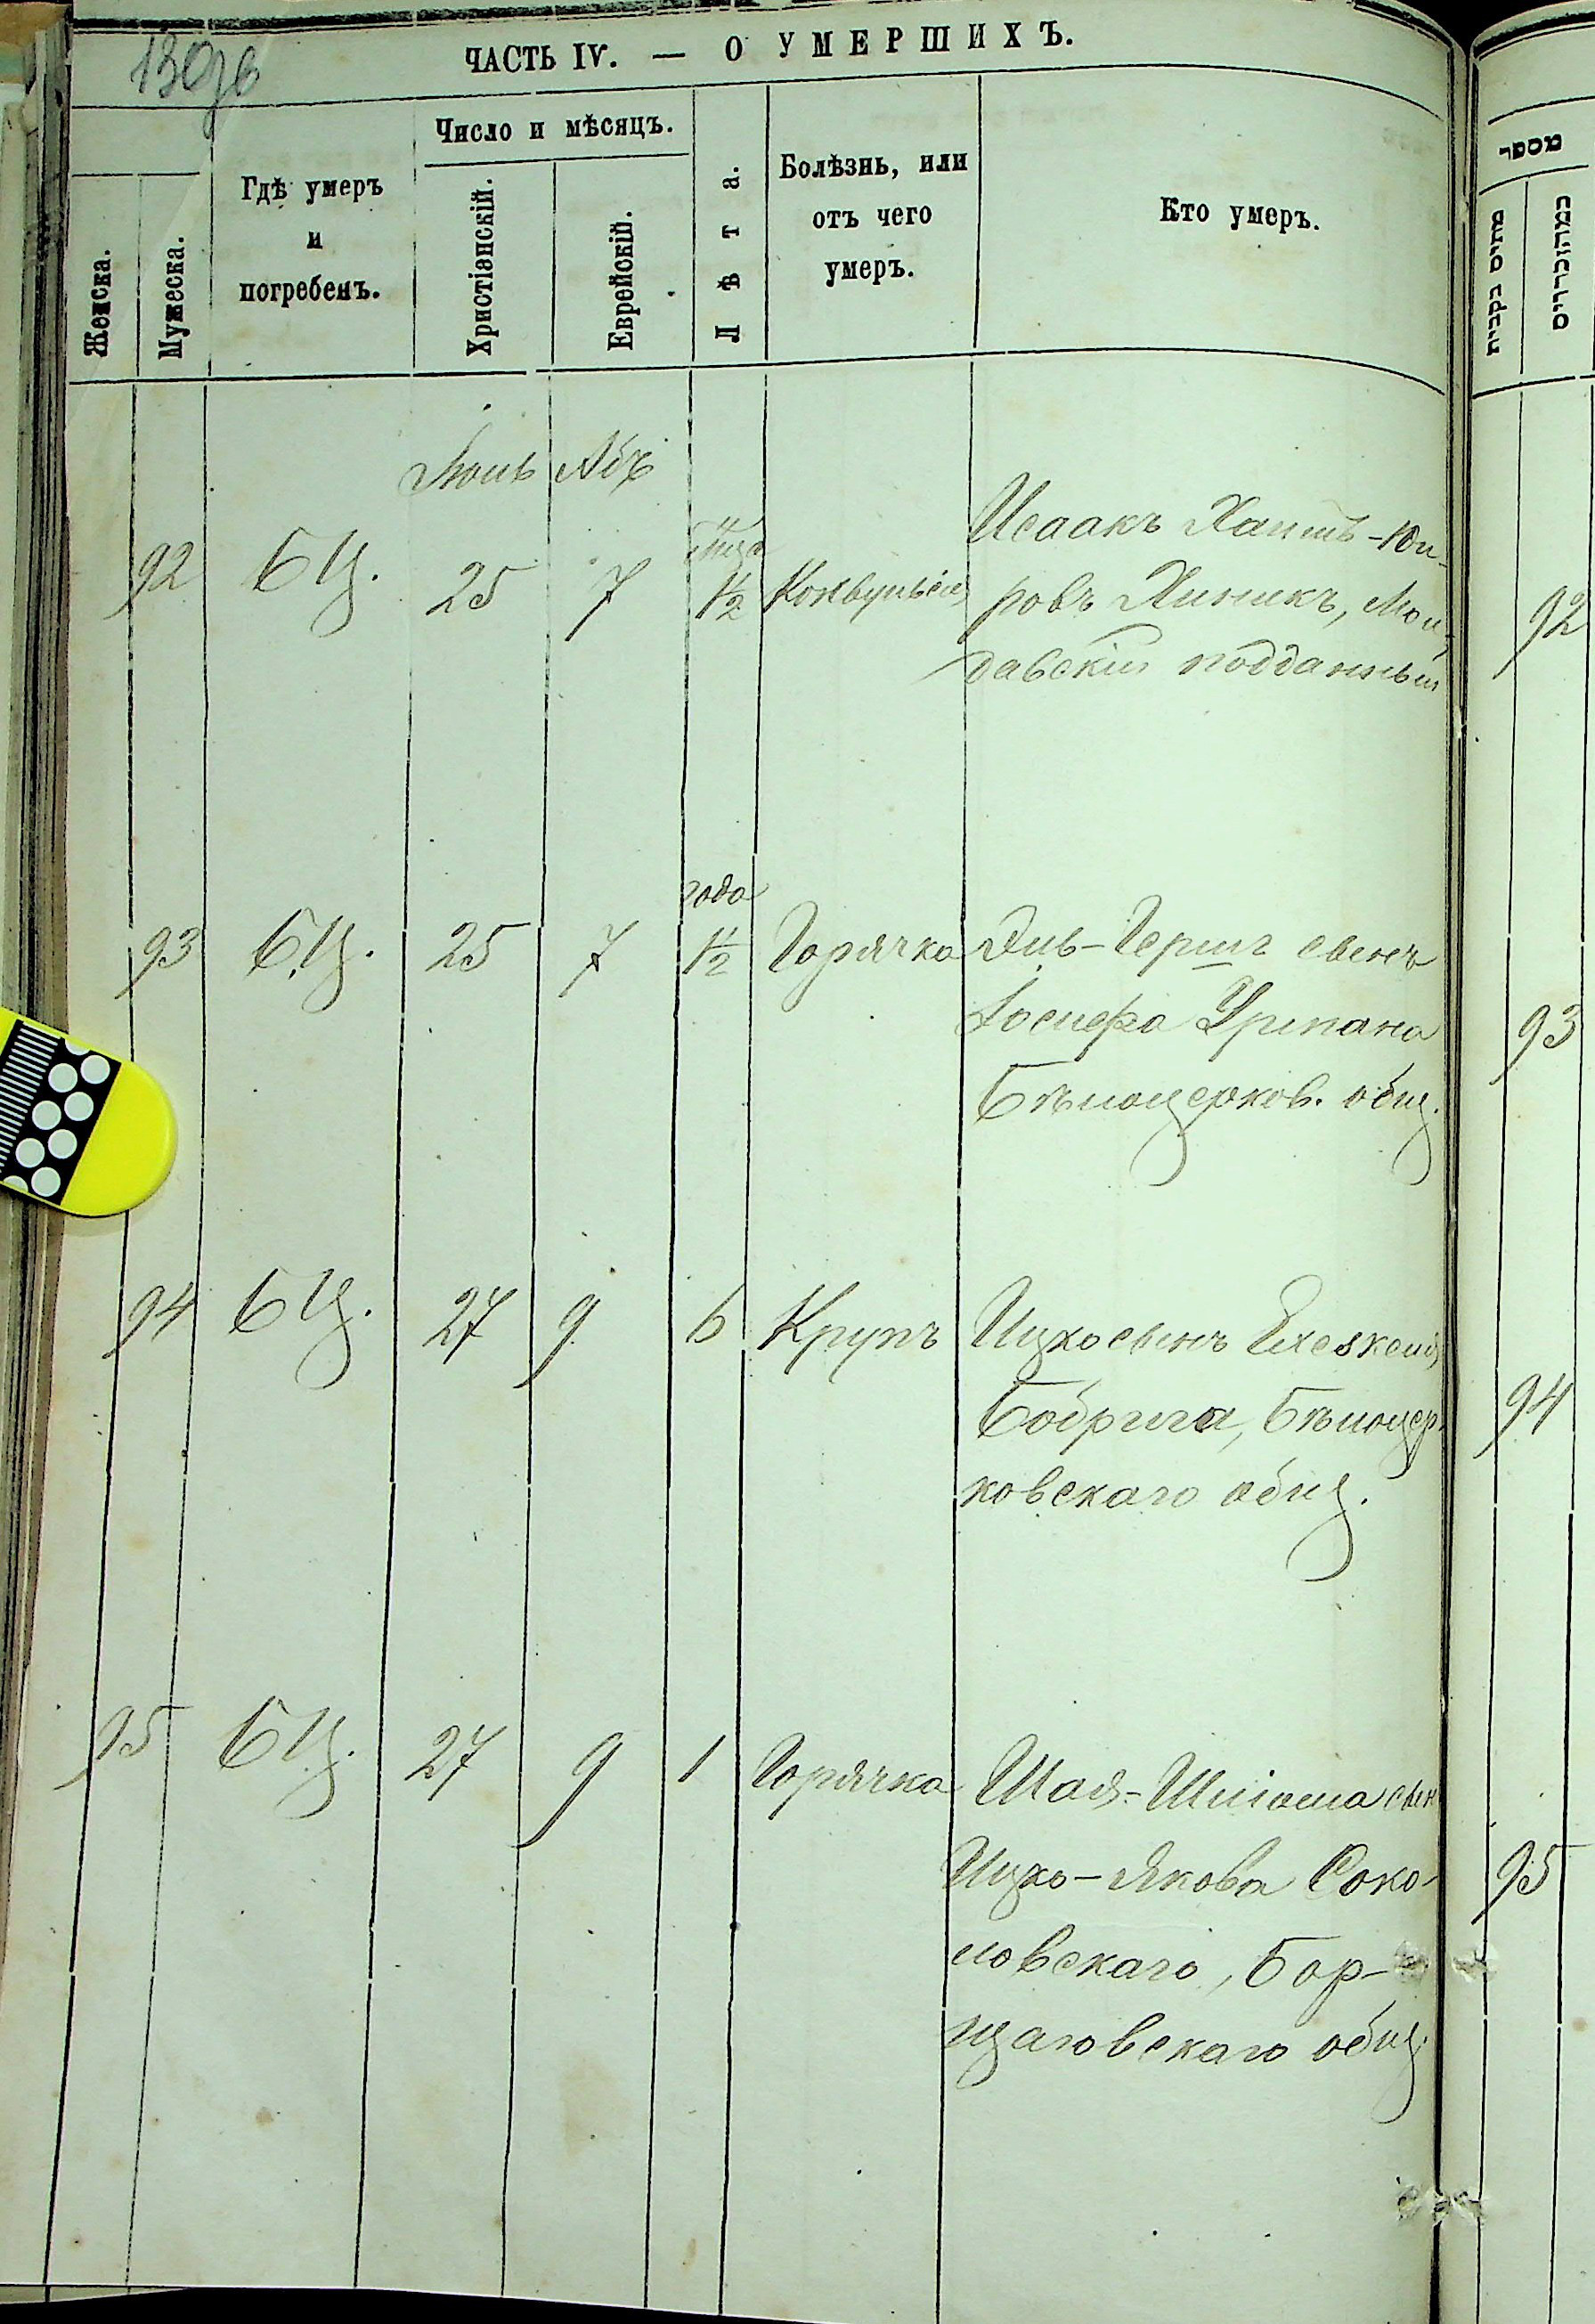 130 об
ЧАСТЬ IV. — О УМЕРШИХЪ.
Женска.
Мужеска.
Гдѣ умеръ
и
погребенъ.
Число и мѣсяцъ.
Христіянскій.
Еврейскій.
Лѣта.
Болѣзнь, или
отъ чего
умеръ.
Кто умеръ.
מספר
מתים נקבות
כמהזכרים
Іюль Абъ
92 БЦ. 25 7 1/2
Исаакъ
ровъ Линикъ, Мол-
давскій подданный
92
года
93 БЦ. 25 7 1/2 Горячка Эль-Гершъ сынъ
Іосифа Урмана
Бѣлоцерков. общ.
93
94 БЦ. 27 9 6 Крупъ Ицко сынъ Ехезкеля
Бобрига, Бѣлоцер-
ковскаго общ.
94
95 БЦ. 27 9 1 Горячка Шая-Шліома сын
Ицко-Якова Соко-
ловскаго, Бор-
щаговскаго общ.
95